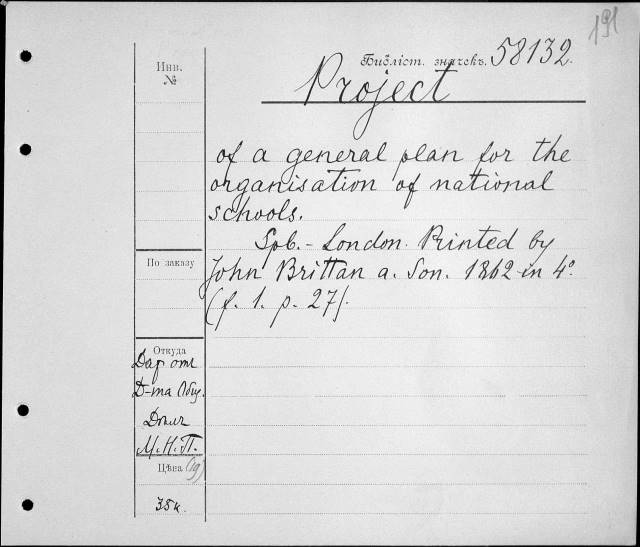 191
Инв.
№
Библіот. значекъ. 58132.
Project
of a general plan for the
organisation of national
schools.
Spb. - London. Printed by
John Brittan a. Son. 1862 in 4°
(f. 1. p. 27).
По заказу
Откуда
Дар от
Д-та Общ.
Дѣлъ
М.Н.П.
Цѣна (19)
35к.